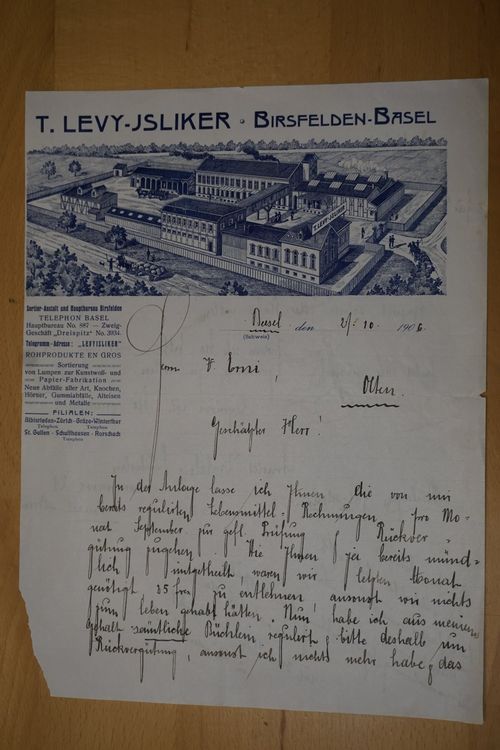 T. LEVY-JSLIKER • BIRSFELDEN-BASEL
T. LEVY-JSLIKER
Sortier-Anstalt und Hauptbureau Birsfelden
TELEPHON BASEL
Hauptbureau No. 887 — Zweig-
Geschäft „Dreispitz" No. 3934.
Telegramm-Adresse: „LEVYISLIKER"
ROHPRODUKTE EN GROS
Sortierung
von Lumpen zur Kunstwoll- und
Papier-Fabrikation
Neue Abfälle aller Art, Knochen,
Hörner, Gummiabfälle, Alteisen
und Metalle
FILIALEN:
Albisrieden-Zürich - Grüze-Winterthur
Telephon Telephon
St. Gallen - Schaffhausen - Rorschach
Telephon
Basel den 2/. 10. 1906.
(Schweiz)
Herrn Erni,
Olten.
Geschätzter Herr!
In der Anlage lasse ich Ihnen die von mir
bereits regulirten Lebensmittel-Rechnungen pro Mo-
nat September zur gefl. Prüfung & Rückver-
gütung zugehen. Wie Ihnen ja bereits münd-
lich mitgetheilt, waren wir letzten Monat
genötigt 35 frs zu entlehnen, ansonst wir nichts
zum leben gehabt hätten. Nun habe ich aus meinem
Gehalt sämtliche Büchlein regulirt & bitte deshalb um
Rückvergütung, ansonst ich nichts mehr habe, & das